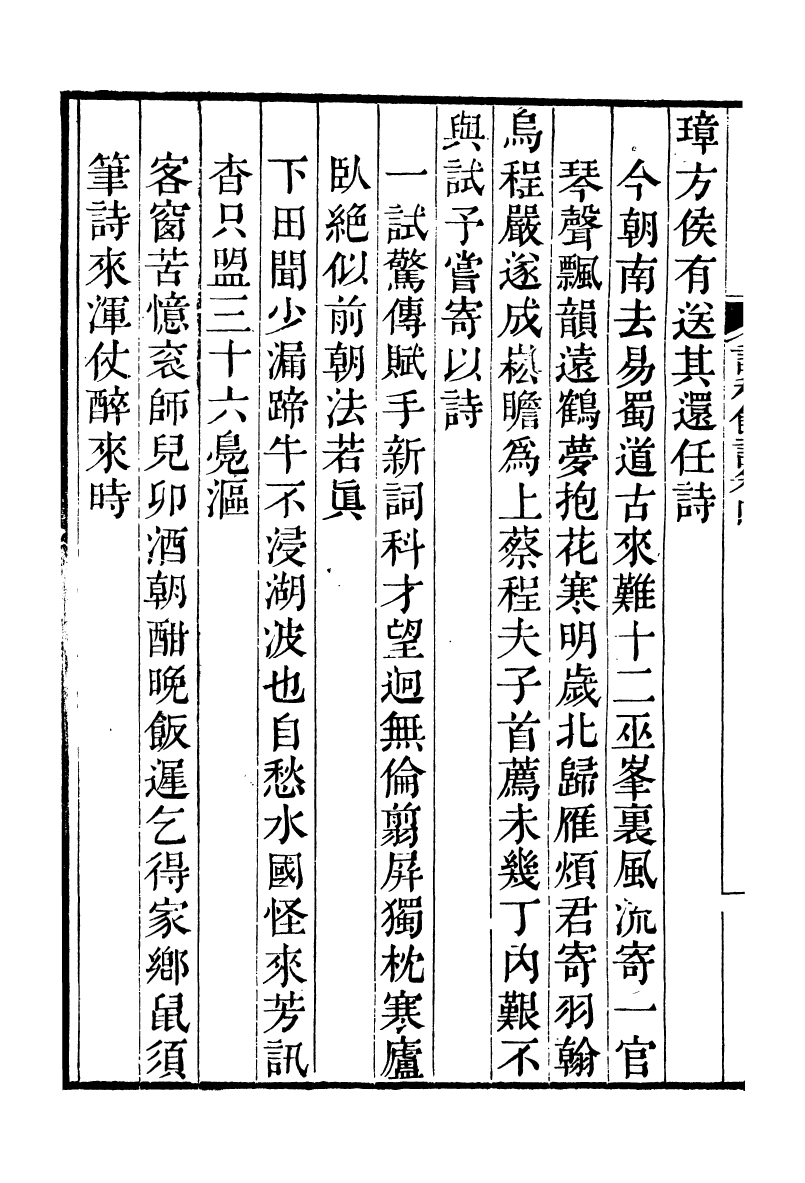 璋方侯有送其還任詩
今朝南去易蜀道古來難十二巫峯裏風流寄一官
琴聲飄韻遠鶴夢抱花寒明歲北歸雁煩君寄羽翰
烏程嚴遂成崧瞻爲上蔡程夫子首薦未幾丁內艱不
與試予嘗寄以詩
一試驚傳賦手新詞科才望迥無倫翦屛獨枕寒廬
臥絶似前朝法若眞
下田聞少漏蹄牛不浸湖波也自愁水國怪來芳訊
杳只盟三十六鳧漚
客窗苦憶衮師兒卯酒朝酣晚飯遲乞得家鄉鼠須
筆詩來渾仗醉來時